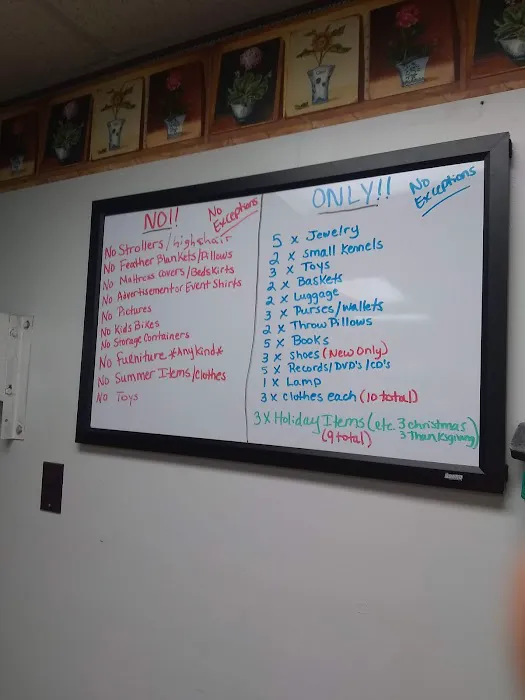 NO!!
No Exceptions
No Strollers/highchair
No Feather Blankets/Pillows
No Mattress covers/Bedskirts
No Advertisement or Event Shirts
No Pictures
No Kids Bikes
No Storage Containers
No Furniture *Any Kind*
No Summer Items/clothes
No Toys
ONLY!!
No Exceptions
5 x Jewelry
2 x Small Kennels
3 x Toys
2 x Baskets
2 x Luggage
3 x Purses/Wallets
2 x Throw Pillows
5 x Books
3 x Shoes (New Only)
5 x Records/DVD's/CD's
1 x Lamp
3 x clothes each (10 total)
3 x Holiday Items (etc. 3 christmas
3 Thanksgiving)
(9 total)